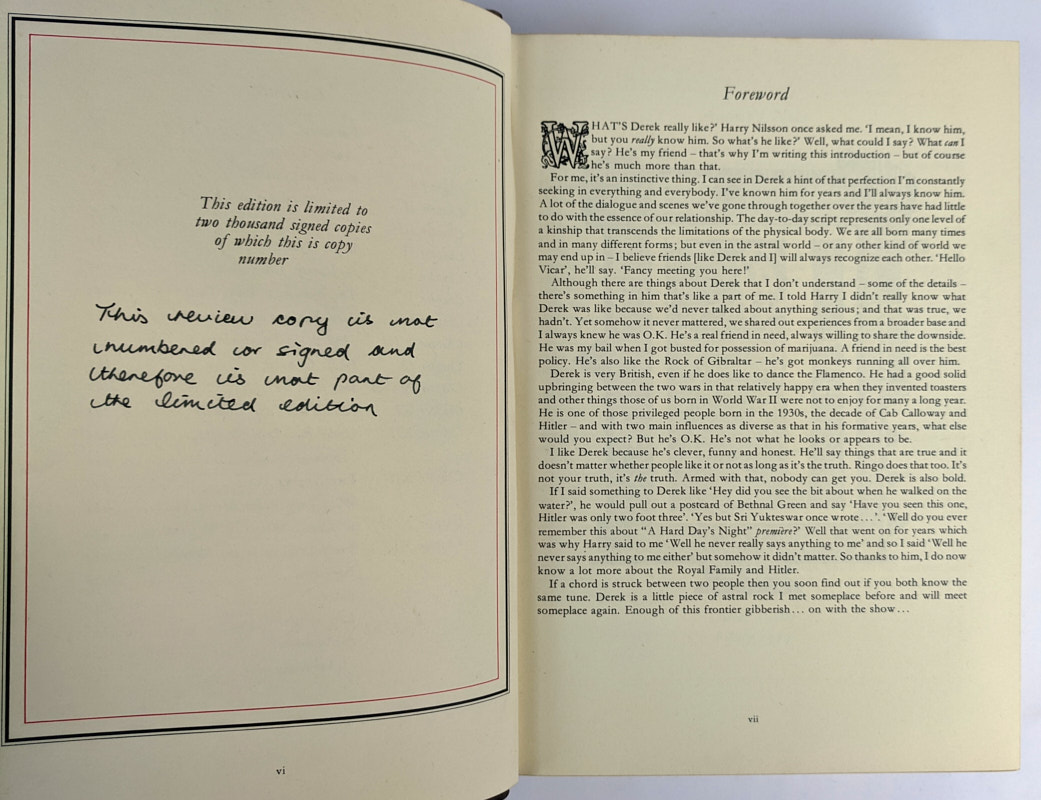 This edition is limited to
two thousand signed copies
of which this is copy
number
This review copy is not
numbered or signed and
therefore is not part of
the limited edition
vi
Foreword
WHAT'S Derek really like?' Harry Nilsson once asked me. 'I mean, I know him,
but you really know him. So what's he like?' Well, what could I say? What can I
say? He's my friend – that's why I'm writing this introduction – but of course
he's much more than that.
For me, it's an instinctive thing. I can see in Derek a hint of that perfection I'm constantly
seeking in everything and everybody. I've known him for years and I'll always know him.
A lot of the dialogue and scenes we've gone through together over the years have had little
to do with the essence of our relationship. The day-to-day script represents only one level of
a kinship that transcends the limitations of the physical body. We are all born many times
and in many different forms; but even in the astral world – or any other kind of world we
may end up in – I believe friends [like Derek and I] will always recognize each other. 'Hello
Vicar', he'll say. 'Fancy meeting you here!'
Although there are things about Derek that I don't understand – some of the details –
there's something in him that's like a part of me. I told Harry I didn't really know what
Derek was like because we'd never talked about anything serious; and that was true, we
hadn't. Yet somehow it never mattered, we shared out experiences from a broader base and
I always knew he was O.K. He's a real friend in need, always willing to share the downside.
He was my bail when I got busted for possession of marijuana. A friend in need is the best
policy. He's also like the Rock of Gibraltar – he's got monkeys running all over him.
Derek is very British, even if he does like to dance the Flamenco. He had a good solid
upbringing between the two wars in that relatively happy era when they invented toasters
and other things those of us born in World War II were not to enjoy for many a long year.
He is one of those privileged people born in the 1930s, the decade of Cab Calloway and
Hitler – and with two main influences as diverse as that in his formative years, what else
would you expect? But he's O.K. He's not what he looks or appears to be.
I like Derek because he's clever, funny and honest. He'll say things that are true and it
doesn't matter whether people like it or not as long as it's the truth. Ringo does that too. It's
not your truth, it's the truth. Armed with that, nobody can get you. Derek is also bold.
If I said something to Derek like 'Hey did you see the bit about when he walked on the
water?', he would pull out a postcard of Bethnal Green and say 'Have you seen this one,
Hitler was only two foot three'. 'Yes but Sri Yukteswar once wrote...'. 'Well do you ever
remember this about "A Hard Day's Night" première?' Well that went on for years which
was why Harry said to me 'Well he never really says anything to me' and so I said 'Well he
never says anything to me either' but somehow it didn't matter. So thanks to him, I do now
know a lot more about the Royal Family and Hitler.
If a chord is struck between two people then you soon find out if you both know the
same tune. Derek is a little piece of astral rock I met someplace before and will meet
someplace again. Enough of this frontier gibberish... on with the show...
vii